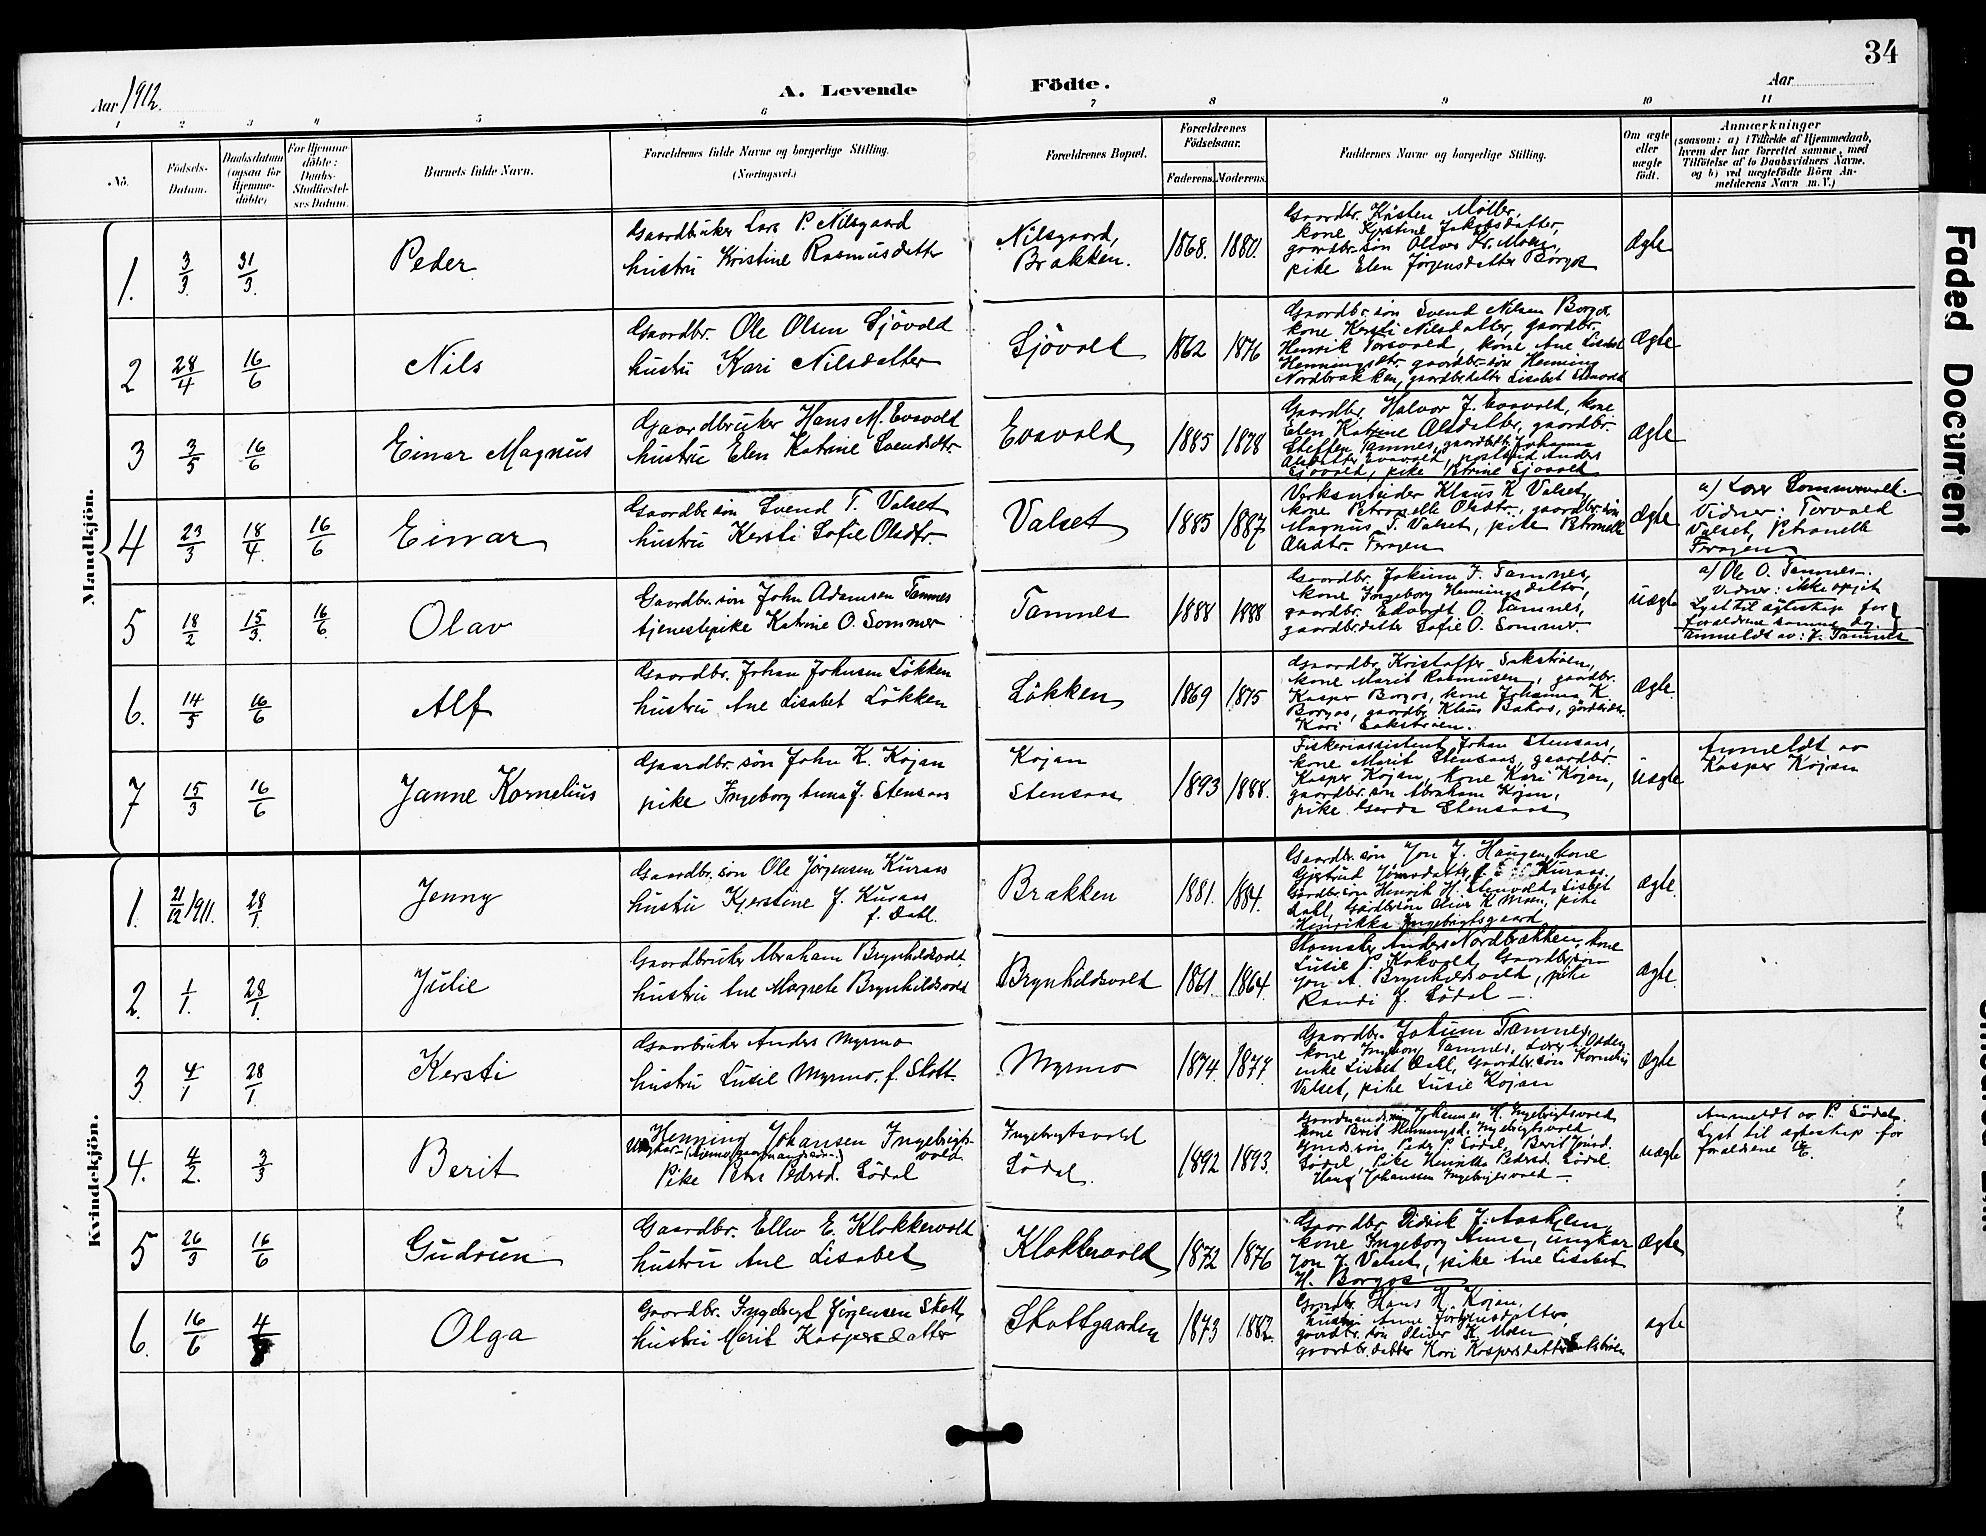 34
Aar 1912.
A. Levende Födte.
Aar
1 2 3 4 5 6 7 8 9 10 11
No.
Födsels-Datum.
Daabsdatum (ogsaa for Hjemme-döbte)
For Hjemme-döbte: Daabs-Stadfæstel-ses Datum.
Barnets fulde Navn.
Forældrenes fulde Navne og borgerlige Stilling.
(Næringsvei.)
Forældrenes Bopæl.
Forældrenes Födselsaar.
Faderens. Moderens.
Faddernes Navne og borgerlige Stilling.
Om ægte eller uægte födt.
Anmærkninger
(saasom: a) i Tilfælde af Hjemmedaab,
hvem der har forrettet samme, med
Tilföielse af to Daabsvidners Navne,
og b) ved uægtefödte Börn An-
melderens Navn m. V.)
Mandkjön.
1. 3/3 31/3. Peder
Gaardbruker Lars P. Nilsgaard
hustru Kristine Rasmusdatter
Nilsgaard,
Brækken.
1868. 1880.
Gaardbr. Kristen Møller,
kone Kjerstine Jakobsdatter,
gaardbr.søn Oliver Kr. Moen,
pike Elen Jørgensdatter Borgos
Ægte
2 28/4 16/6 Nils
Gaardbr. Ole Olsen Sjövold
hustru Kari Nilsdatter
Sjövold
1862 1876
Gaardbr.søn Svend Nilsen Borgos
kone Kersti Nilsdatter, gaardbr.
Henrik Torsvold, kone Ane Lisabet
Henningsdtr. gaardbr.søn Henning
Nordbrækken, gaardbr.datter Lisabet Stenvold
Ægte
3 3/5 16/6 Einar Magnus
Gaardbruker Hans M. Evavold
hustru Elen Katrine Svendsdtr.
Evavold
1885 1878
Gaardbr. Halvor J. Evavold, kone
Elen Katrine Olsdatter, gaardbr.
Steffen Tamnes, Johanna
Evavold, Anders
Sjövold, pike Petrine Sjövold
Ægte
4 23/3 18/4. 16/6 Einar
Gaardbr.søn Svend T. Valset
hustru Kersti Sofie Olsdtr.
Valset
1885 1887
Verksarbeider Klaus K. Valset,
kone Petronelle Olsdtr., gaardbr.søn
Magnus T. Valset, pike Petronelle
Olsdtr. Feragen
Ægte
a) Lærer Sommervold.
Vidner: Torvald
Valset, Petronelle
Feragen
5 18/2 15/3. 16/6. Olav
Gaardbr.søn John Adamsen Tamnes
tjenestepike Katrine O. Sommer
Tamnes
1888 1888
Gaardbr. Jokum J. Tamnes,
kone Ingeborg Henningsdatter,
gaardbr. Edvardt O. Tamnes,
gaardbr.datter Sofie O. Sommer.
uægte
a) Ole O. Tamnes.
Vidner: ikke opgit
Lyst til ægteskap for
forældrene samme dag.
Anmeldt av: J. Tamnes
6. 14/5 16/6 Alf
Gaardbr. Johan Johnsen Lökken
hustru Ane Lisabet Lökken
Lökken
1869 1875
Gaardbr. Kristoffer Sakströen,
kone Marit Rasmusen, gaardbr.
Kasper Borgos, kone Johanna K.
Borgos, gaardbr. Klaus Bakos,
Kari Sakströen.
Ægte.
7 15/3 16/6 Janne Kornelius
Gaardbr.søn John K. Kojan
pike Ingeborg Anna J. Stensaas
Kojan
Stensaas
1893 1888.
Fiskeriassistent Johan Stensaas,
kone Marit Stensaas, gaardbr.
Kasper Kojan, kone Kari Kojan,
gaardbr.søn Abraham Kojan,
pike Gerda Stensaas
uægte
Anmeldt av
Kasper Kojan
Kvindekjön.
1. 21/12 1911. 28/1. Jenny
Gaardbr.søn Ole Jörgensen Kuraas
hustru Kjerstine J. Kuraas
f. Dahl.
Brækken
1881. 1884.
Gaardbr.søn Jon J. Haugen, kone
Gjertrud Kuraas,
Gaardbr.søn Henrik H. Stenvold, Lisbet
Dahl, Gaardbr.søn Oliver K. Moen, pike
Henrikka Ingebrigtsgaard
Ægte.
2. 1/1. 28/1. Julie
Gaardbruker Abraham Brynhildsvold
hustru Ane Margrete Brynhildsvold
Brynhildsvold
1861. 1864.
Skomaker Anders Nordbrækken, kone
Lusie P. Kokvold, Gaardbr.søn
Jon A. Brynhildsvold, pike
Randi J. Södal —.
ægte.
3. 4/1 28/1. Kersti
Gaarbruker Anders Myrmo
hustru Lusie Myrmo. f. Skott.
Myrmo
1874. 1877.
Gaardbr. Jokum Tamnes,
kone Ingeborg Tamnes, Lærer
enke Lisbet Dahl, Gaardbr.søn Kornelius
Valset, pike Lusie Kojan
ægte
4. 4/2. 3/3 Berit
Henning Johansen Ingebrigts-
vold
Pike Berit Pedersd. Södal
Ingebrigtsvold
Södal.
1892 1893.
Johannes H. Ingebrigtsvold
kone Berit Henningsd. Ingebrigtsvold
Peder P. Södal, Berit
Södal, Pike Henrikka Pedersd. Södal.
Hans Johanssen Ingebrigtsvold —
uægte
Anmeldt av P. Södal.
Lyst til ægteskap for
forældrene
5 26/3 16/6 Gudrun
Gaardbr. Ellev E. Klokkervold
hustru Ane Lisabet
Klokkervold
1872 1876
Gaardbr. Didrik J. Aashjem,
kone Ingeborg Anna, ungkar
Jon J. Valset, pike Ane Lisabet
H. Borgos
Ægte
6. 16/6 4/8 Olga
Gaardbr. Ingebrigt Jörgensen Skott,
hustru Marit Kaspersdatter
Skottgaarden
1873 1882.
Gaardbr. Hans H. Kojan,
hustru Anne
gaardbr.søn Oliver K. Moen
gaardbr.datter Kari Kaspersdatter Sakströen
ægte
Faded Document